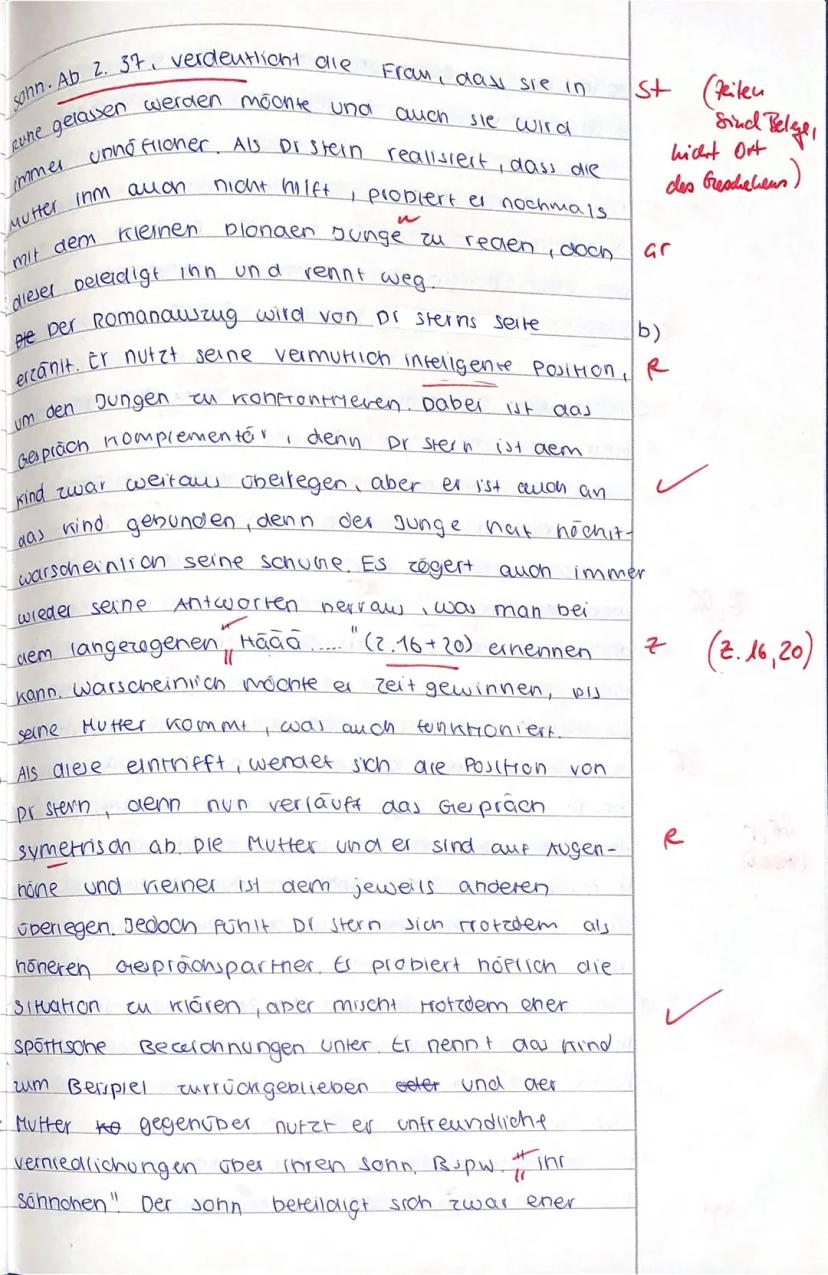 sohn. Ab Z. 37, verdeutlicht die Frau, dass sie in
St (Zeilen
sind Belege,
nicht Ort
des Geschehens)
ruhe gelassen werden möchte und auch sie wird
immer unhöflicher. Als Dr Stern realisiert, dass die
Mutter ihm auch nicht hilft, probiert er nochmals
mit dem kleinen blonden Junge zu reden, doch
n
Gr
dieser beleidigt ihn und rennt weg.
Die Der Romanauszug wird von Dr Sterns seite
b)
erzählt. Er nutzt seine vermutlich inteligente Position,
R
um den Jungen zu konfrontrieren. Dabei ist das
Gespräch komplementär, denn Dr Stern ist dem
Kind zwar weitaus überlegen, aber er ist auch an
✓
das Kind gebunden, denn der Junge hat höchst-
warscheinlich seine Schuhe. Es zögert auch immer
wieder seine Antworten herraus, was man bei
dem langezogenen "Häää ....." (Z.16+20) erkennen
Z (Z.16,20)
kann. Warscheinlich möchte er Zeit gewinnen, bis
seine Mutter kommt, was auch funktioniert.
Als diese eintrifft, wendet sich die Position von
Dr Stern, denn nun verläuft das Gespräch
symetrisch ab. Die Mutter und er sind auf Augen-
R
höhe und keiner ist dem jeweils anderen
überlegen. Jedoch fühlt Dr Stern sich trotzdem als
höheren Gesprächspartner. Er probiert höflich die
situation zu klären, aber mischt trotzdem eher
✓
spöttische Bezeichnungen unter. Er nennt das Kind
zum Beispiel zurrückgeblieben oder und der
Mutter ko gegenüber nutzt er unfreundliche
verniedlichungen über ihren sohn. Bspw. "ihr
söhnchen". Der sohn beteildigt sich zwar eher